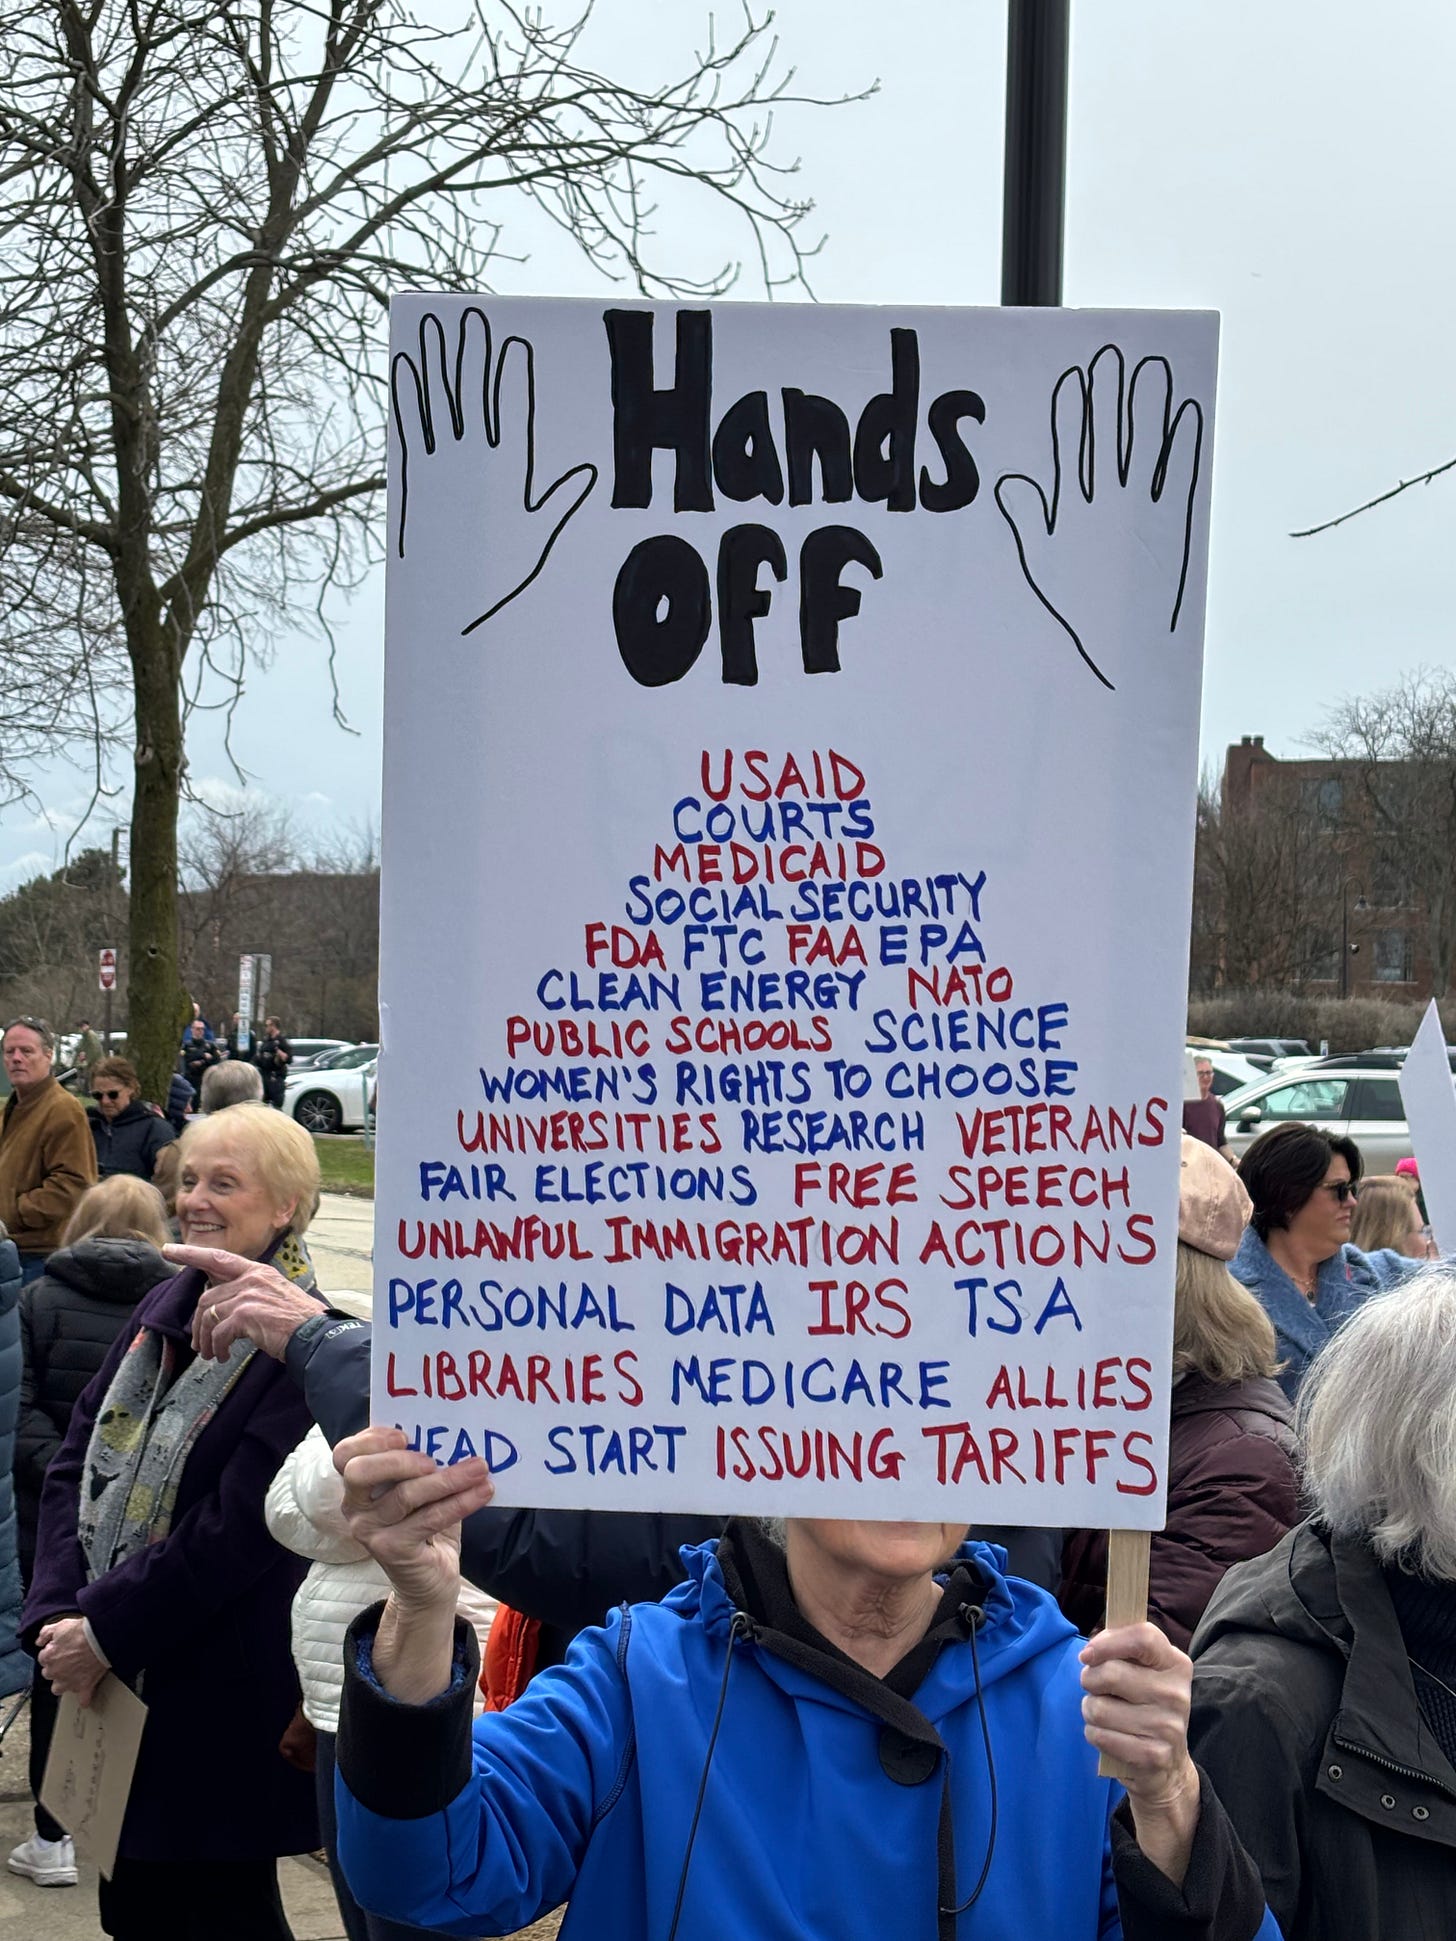 Hands
OFF
USAID
COURTS
MEDICAID
SOCIAL SECURITY
FDA FTC FAA EPA
CLEAN ENERGY NATO
PUBLIC SCHOOLS SCIENCE
WOMEN'S RIGHTS TO CHOOSE
UNIVERSITIES RESEARCH VETERANS
FAIR ELECTIONS FREE SPEECH
UNLAWFUL IMMIGRATION ACTIONS
PERSONAL DATA IRS TSA
LIBRARIES MEDICARE ALLIES
HEAD START ISSUING TARIFFS